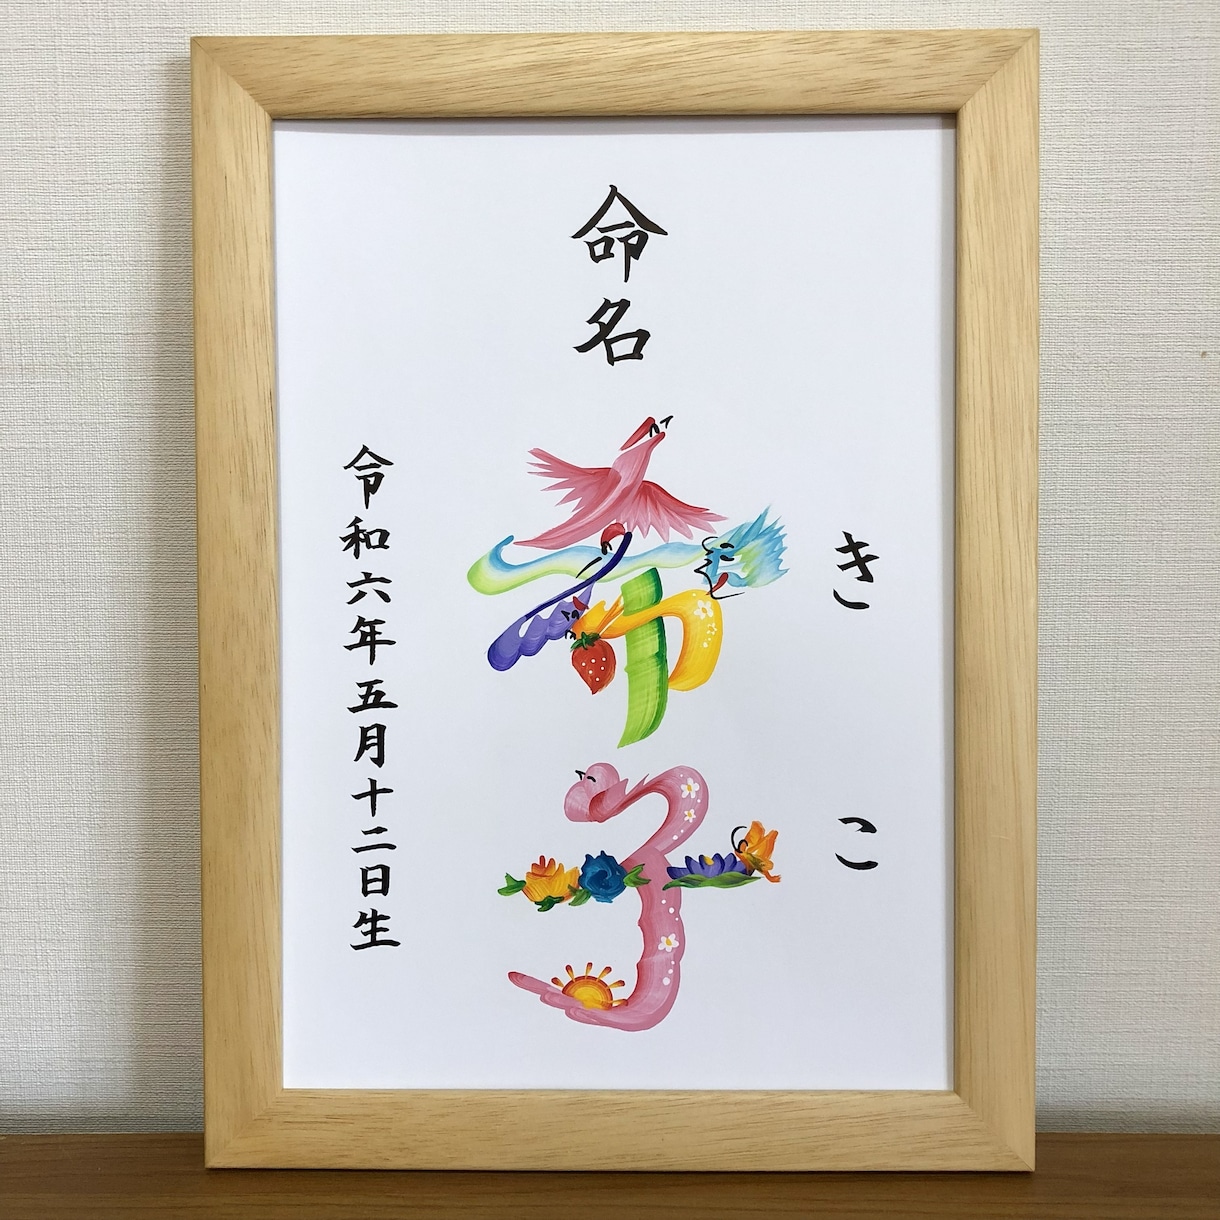 命名
希子
きこ
令和六年五月十二日生